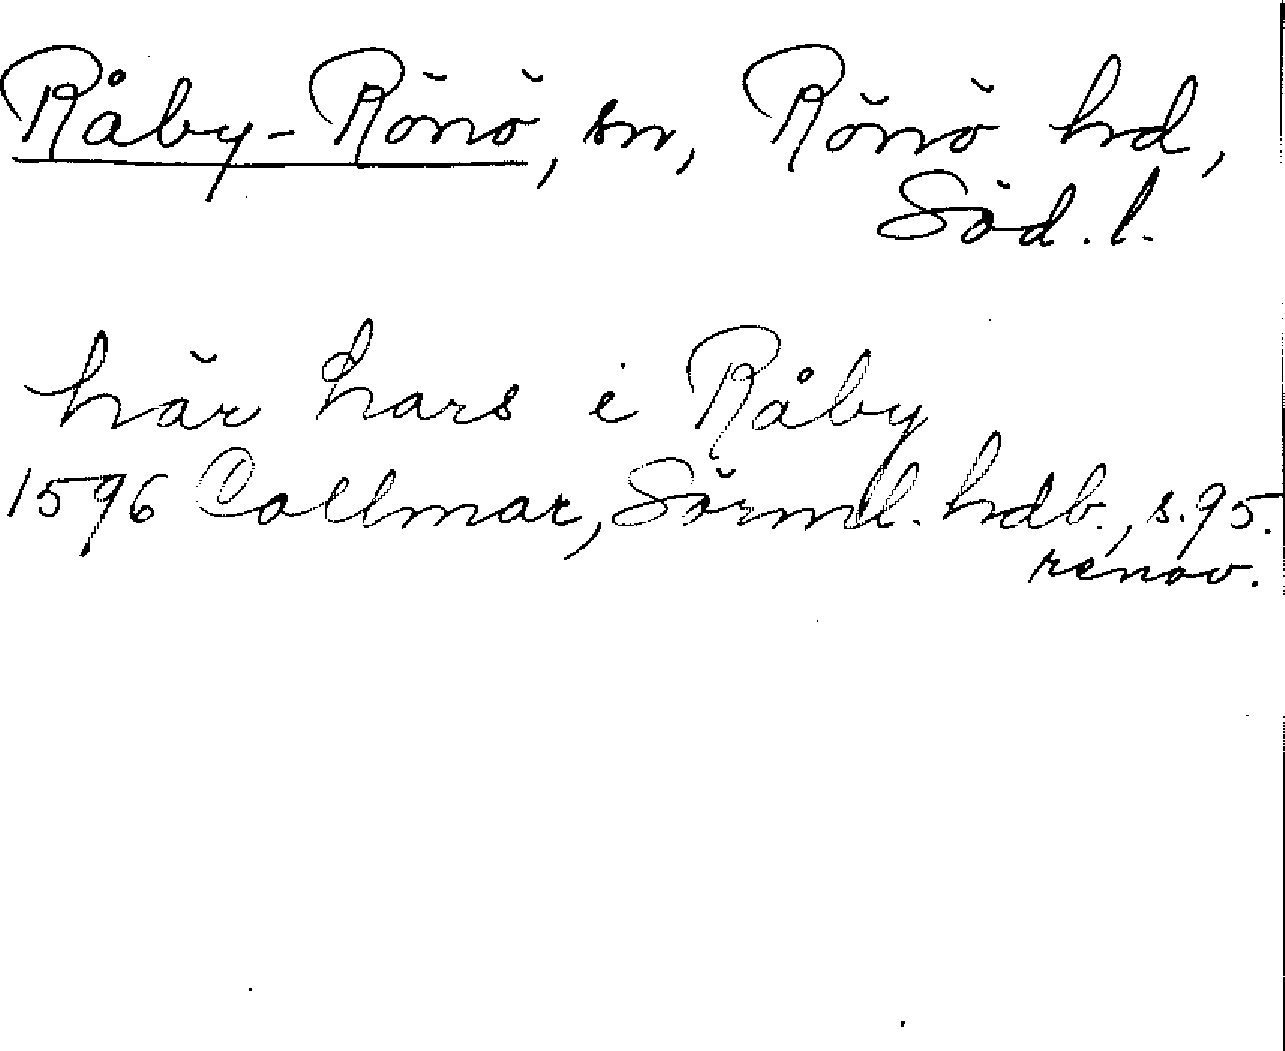 Råby-Rönö, sn, Rönö hd,
Söd. l.
här hars i Råby
1596 Collmar, Sörml. hdb., s. 95.
renov.